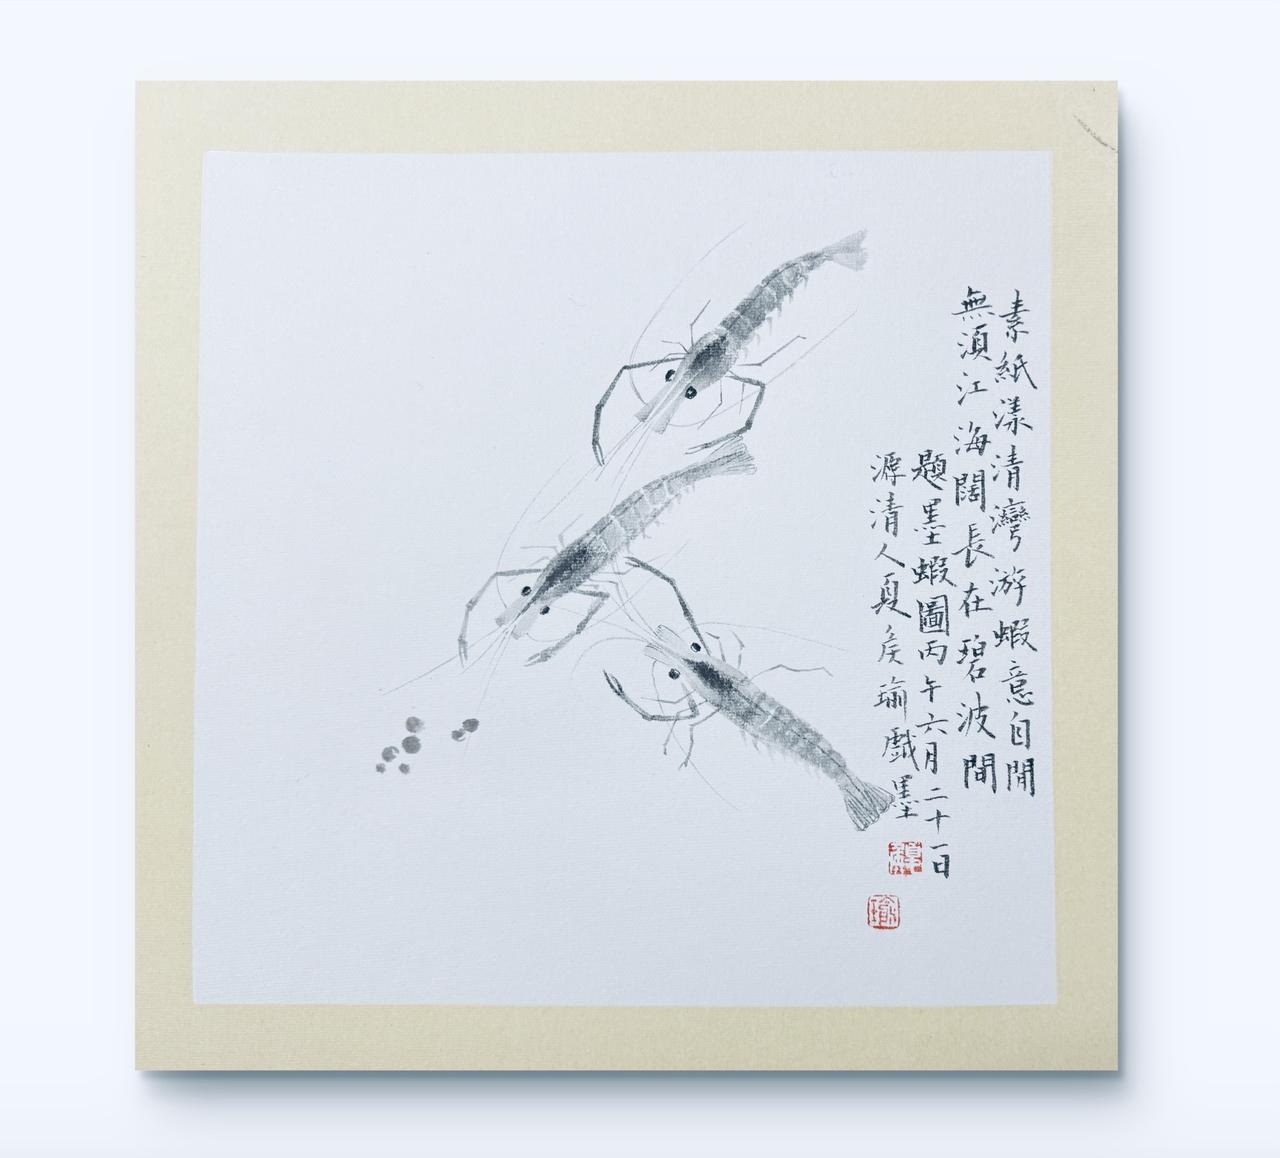 素紙漾清灣游蝦意自閒
無須江海闊長在碧波間
題墨蝦圖丙午六月二十一日
源清人夏侯瑜戲墨
瑜